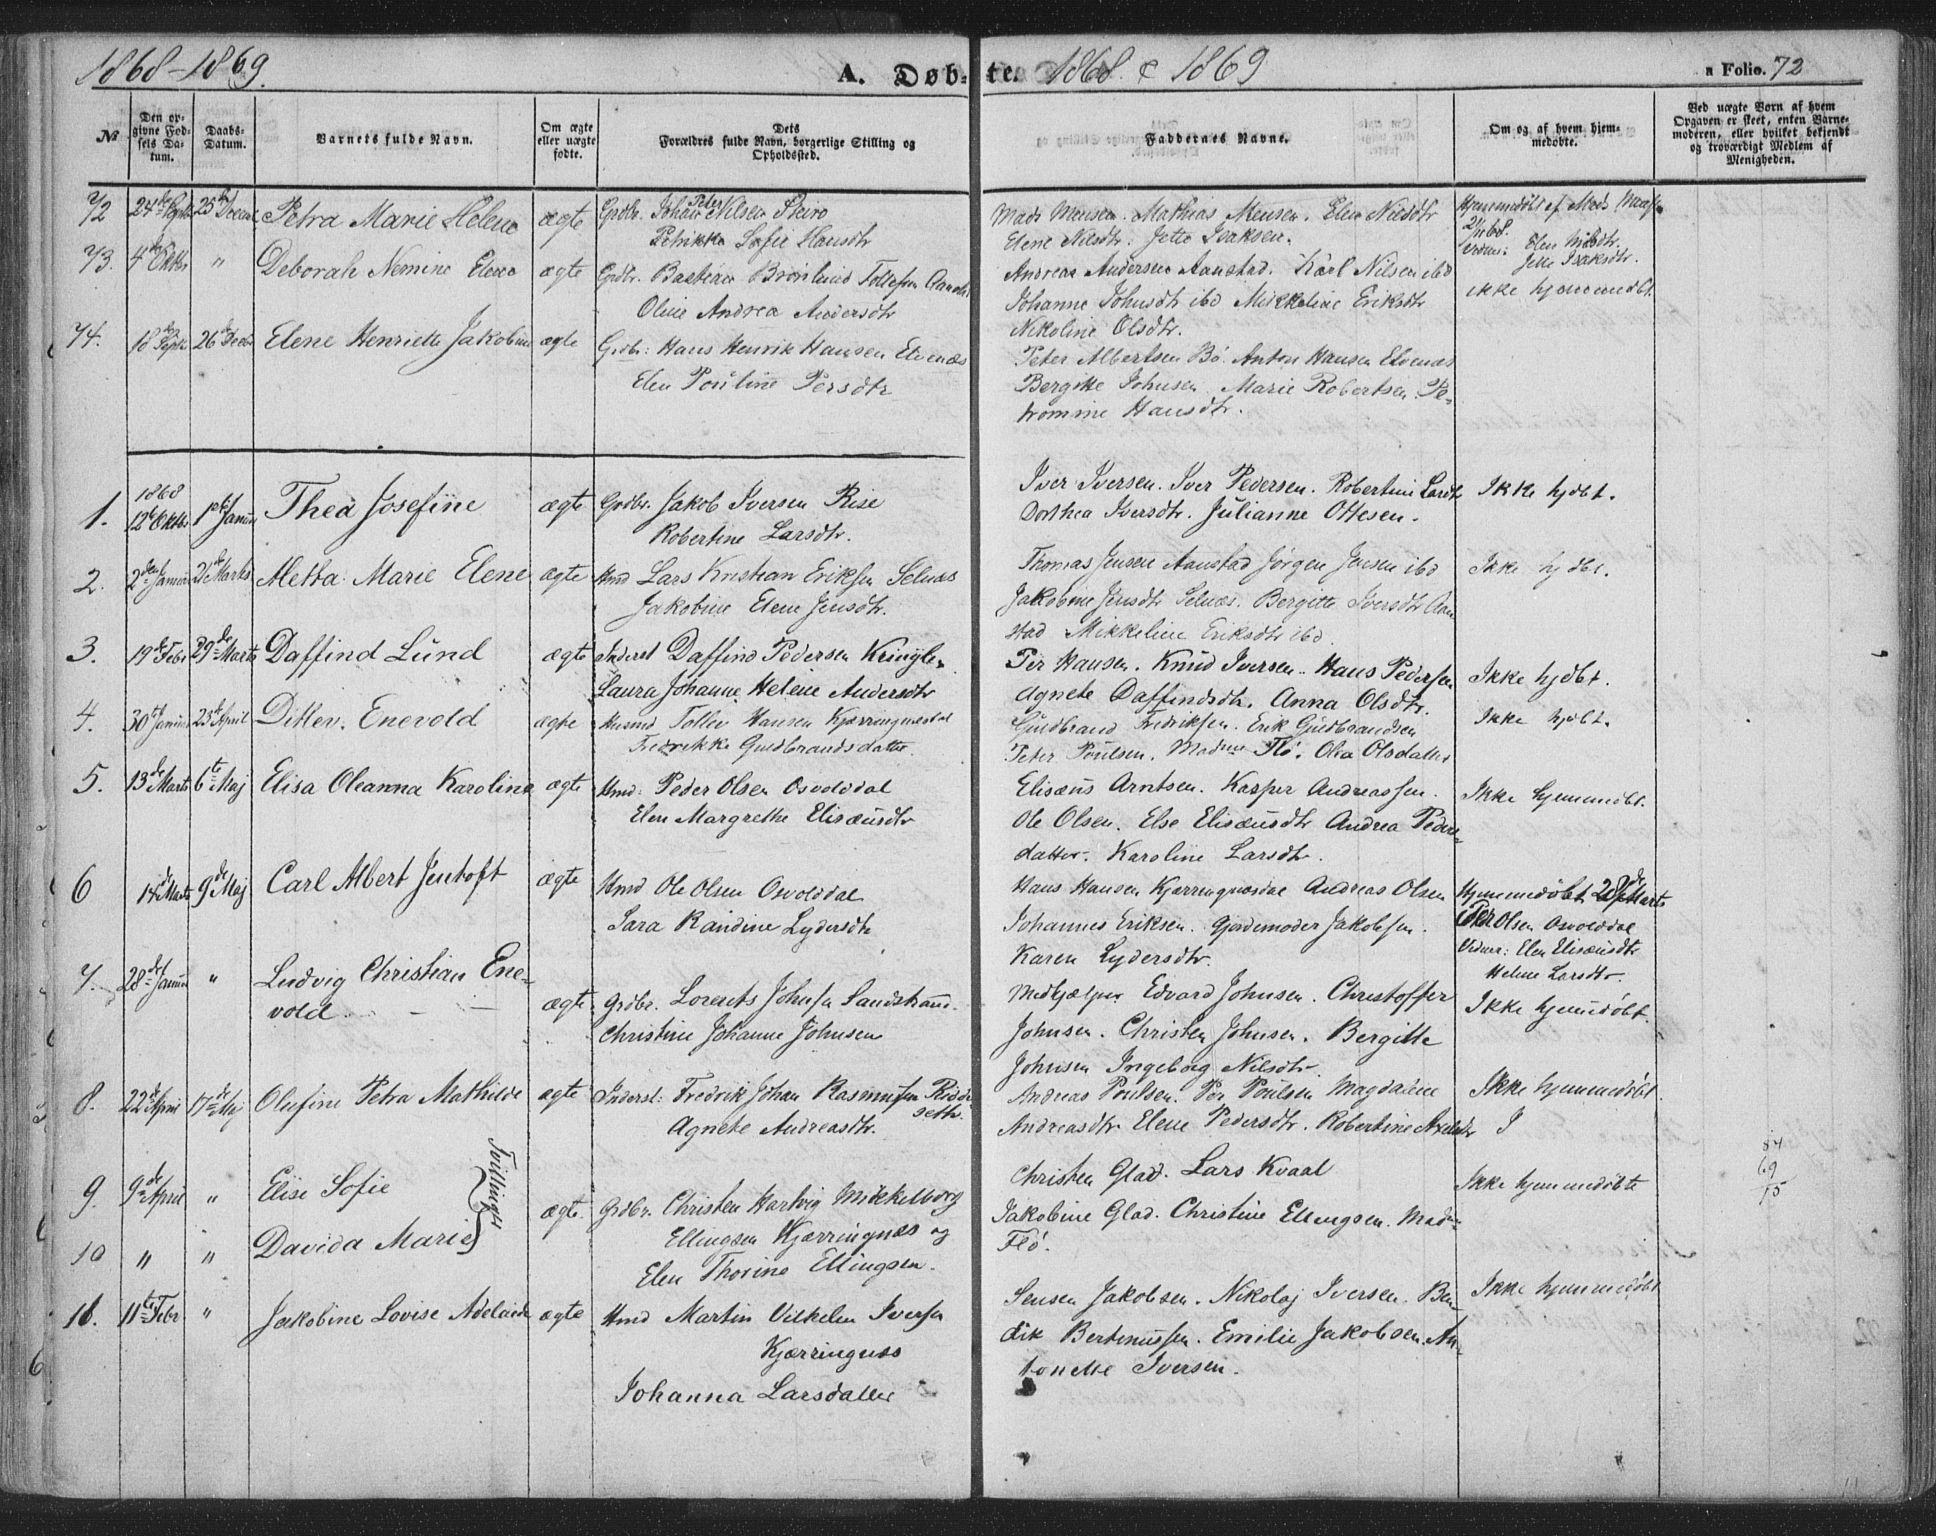 1868-1869.
A. Døbte.
1868 & 1869
Folio. 72
№
Den opgivne Fødsels Datum.
Daabs-Datum.
Barnets fulde Navn.
Om ægte eller uægte fødte.
Dets Forældres fulde Navn, borgerlige Stilling og Opholdssted.
Faddernes Navne.
Om og af hvem hjemmedøbte.
Ved uægte Børn af hvem Opgaven er skeet, enten Barnemoderen, eller hvilket bekjendt og troværdigt Medlem af Menigheden.
72 24de Septbr 25de Decbr Petra Marie Helene ægte Grdbr. Johan Peter Nilsen
Petrikke Sofie Hansdtr
Mads Monsen. Mathias Monsen. Elen Nilsdtr
Elene Nilsdtr. Jette Isaksen.
Hjemmedøbt af Mads
2/11 68.
Vidner: Elen Nilsdtr.
Jette Isaksdtr.
73. 4de Oktbr " Deborah Nemine Elene ægte Grdbr. Bastian Brønlund Tollefsen
Oline Andrea Andersdtr
Andreas Andersen Aanstad. Karl Nilsen ibd
Johanne Johnsdtr ibd Mikkeline Eriksdtr
Nikoline Olsdtr.
ikke hjemmedbt.
74. 18de Septbr 26de Decbr Elene Henriette Jakobine ægte Grdbr: Hans Henrik Hansen Elvenæs
Elen Pouline Persdtr
Peter Albertsen Bø. Anton Hansen Elvenæs
Bergitte Johnsen. Marie Robertsen. Pe-
tromine Hansdtr.
1. 1868 12te Oktbr 1ste Januar Thea Josefine ægte Grdbr. Jakob Iversen Rise
Robertine Larsdtr.
Iver Iversen. Iver Pedersen. Robertine Larsdtr
Dorthea Iversdtr. Julianne Ottesen.
Ikke hjdbt.
2. 2den Januar 21de Marts Aletta Marie Elene ægte Hmd Lars Kristian Eriksen Selnæs
Jakobine Elene Jensdtr.
Thomas Jensen Aanstad Jørgen Jensen ibd
Jakobine Jensdtr Selnæs. Bergitte Iversdtr Aan-
stad Mikkeline Eriksdtr ibd.
Ikke hjdbt.
3. 19de Febr 29de Marts Daffind Lund ægte Inderst Daffind Pedersen Kringlen
Laura Johanne Helene Andersdtr
Per Hansen. Knud Iversen. Hans Pedersen
Agnete Daffindsdtr. Anna Olsdtr.
Ikke hjdbt.
4. 30te Januar 23de April Ditlev. Enevold ægte Husmd Tollev Hansen Kjerringnesdal
Fredrikke Guldbrandsdatter.
Guldbrand Fredriksen. Erik Guldbrandsen
Peter Poulsen. Madme Flø. Olea Olsdatter
Ikke hjdbt.
5. 13de Marts 6te Maj Elisa Oleanna Karolina ægte Hmd: Peder Olsen Osvolddal
Elen Margrethe Elisæusdtr
Elisæus Arntsen. Kasper Andreassen.
Ole Olsen. Else Elisæusdtr Andrea Peders-
datter. Karoline Larsdtr.
Ikke hjemmedbt.
6 14de Marts 9de Maj Carl Albert Jentoft ægte Hmd Ole Olsen Osvolddal
Sara Randine Lydersdtr
Hans Hansen Kjerringnesdal Andreas Olsen
Johannes Eriksen. Gjordemoder Jakobsen.
Karen Lydersdtr.
Hjemmedøbt 28de Marts
Per Olsen Osvolddal
Vidner: Elen Elisæusdtr
Helene Larsdtr.
7. 28de Januar " Ludvig Christian Ene-
vold. ægte Grdbr. Lorents Johnsen Sandstrand.
Christine Johanne Johnsen
Medhjælper Edvard Johnsen. Christoffer
Johnsen. Christen Johnsen. Bergitte
Johnsen Ingeborg Nilsdtr.
Ikke hjemmedøbt.
8. 22de April 17de Maj Olufine Petra Mathilde ægte Inderst: Fredrik Johan Rasmussen Rødsseth.
Agnete Andreasdtr.
Andreas Poulsen. Per Poulsen Magdalene
Andreasdtr. Elene Pedersdtr. Robertine Axelsdtr
Ikke hjemmedøbt
9. 9de April " Elise Sofie
Tvillinger
ægte. Grdbr. Christen Hartvig Mikkelborg
Ellingsen Kjærringnæs og
Elen Thorine Ellingsen.
10 " " Davida Marie
Christen Glad. Lars Kvaal
Jakobine Glad. Christine Ellingsen. Madme
Flø.
Ikke hjemmedøbte
84
69
15
11. 11te Febr " Jakobine Lovise Adelaide ægte Hmd Martin Vilhelm Iversen
Kjærringnæs
Johanna Larsdatter
Jensen Jakobsen. Nikolaj Iversen. Ben-
dik Bertinussen. Emilie Jakobsen. An-
tonette Iversen.
Ikke hjemmedøbt